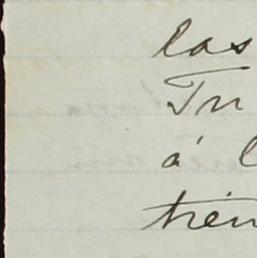 las
Tu
á l
tien